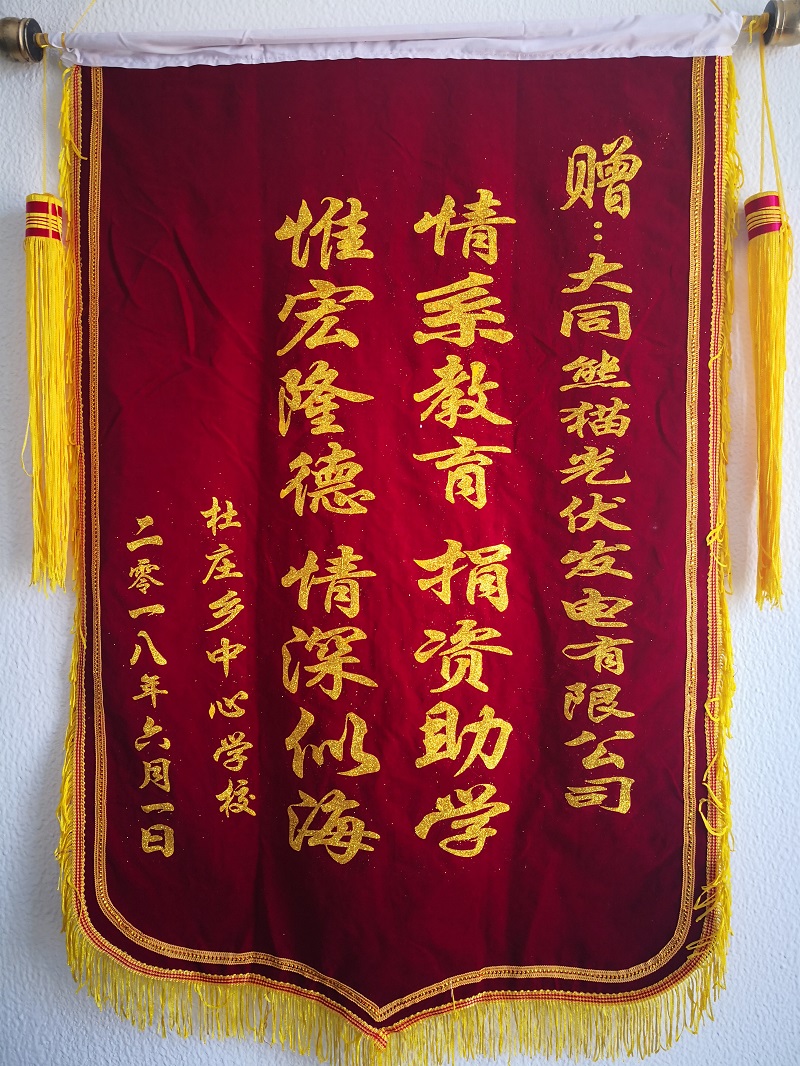 赠:大同熊猫光伏发电有限公司
情系教育 捐资助学
惟宏隆德 情深似海
杜庄乡中心学校
二零一八年六月一日